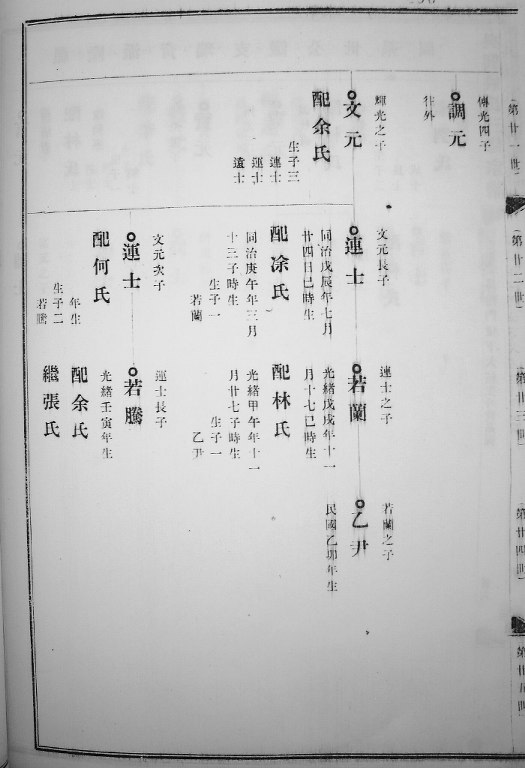 第廿一世
傳光四子
調元
往外
輝光之子
文元
配余氏
生子三
連士
運士
遠士
第廿二世
文元長子
連士
同治戊辰年七月
廿四日巳時生
配凃氏
同治庚午年三月
十三子時生
生子一
若蘭
文元次子
運士
配何氏
年生
生子二
若騰
第廿三世
連士之子
若蘭
光緒戊戌年十一
月十七巳時生
配林氏
光緒甲午年十一
月廿七子時生
生子一
乙尹
運士長子
若騰
光緒壬寅年生
配余氏
繼張氏
第廿四世
若蘭之子
乙尹
民國乙卯年生
第廿五世